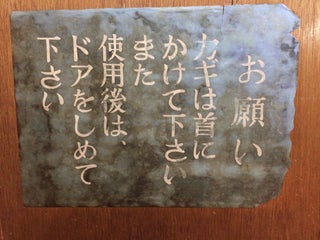 お願い
カギは首に
かけて下さい
また
使用後は、
ドアをしめて
下さい